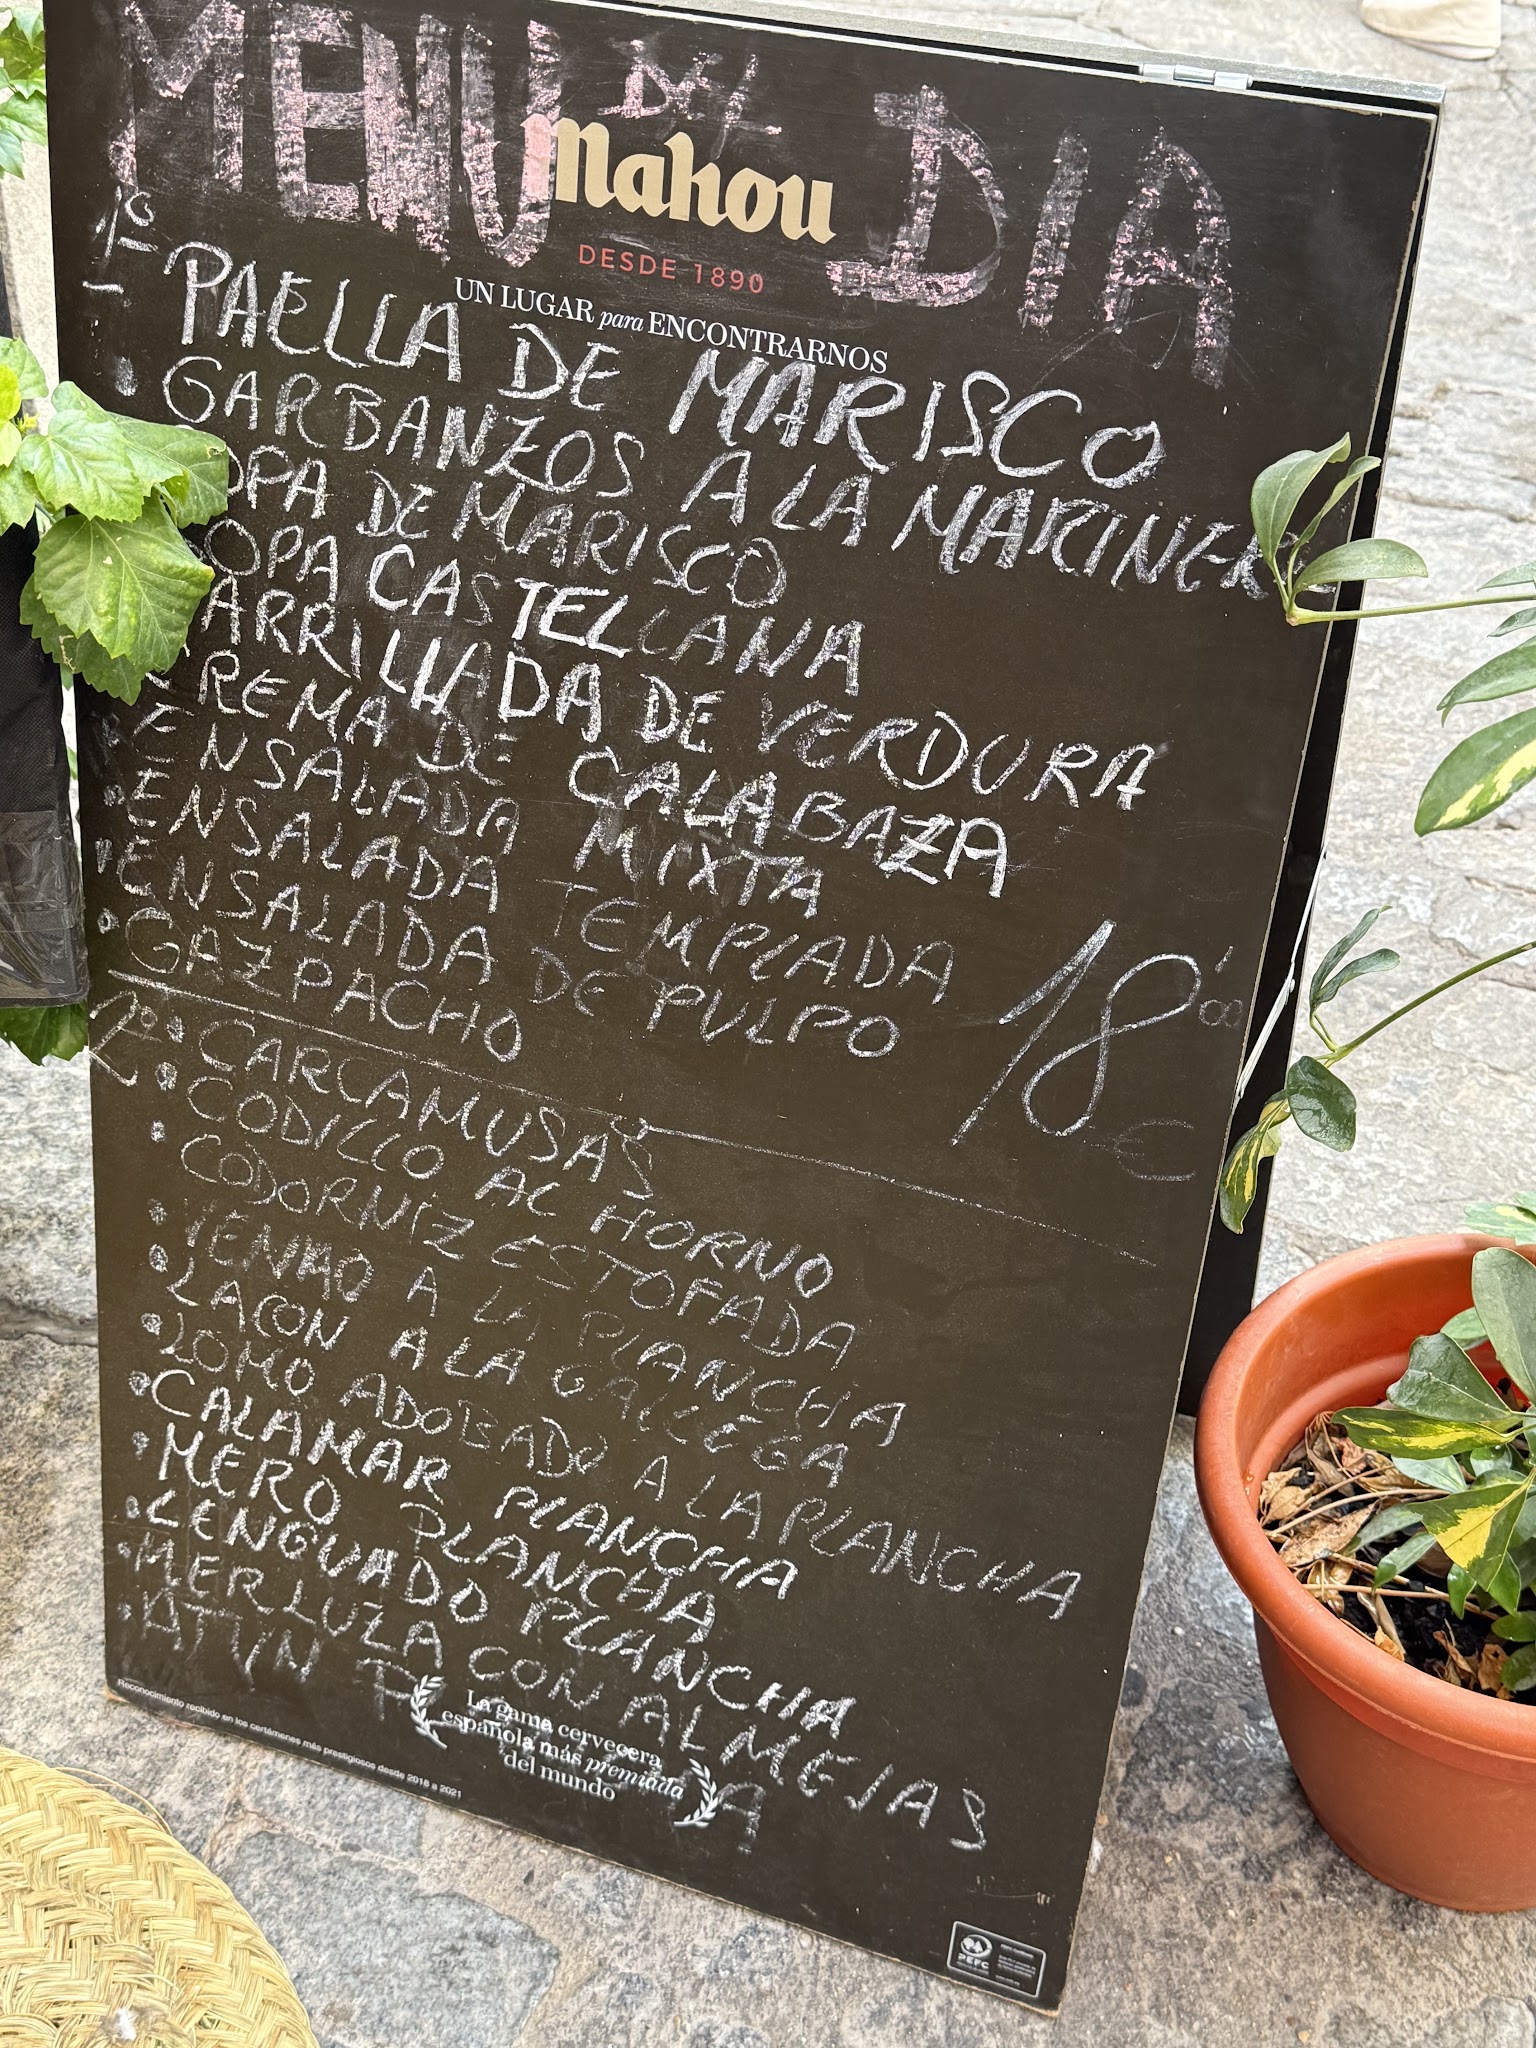 MENU DEL DIA
Mahou
DESDE 1890
UN LUGAR para ENCONTRARNOS
1º
- PAELLA DE MARISCO
• GARBANZOS A LA MARINER
OPA DE MARISCO
OPA CASTELLANA
ARRILLADA DE VERDURA
REMA DE CALABAZA
ENSALADA MIXTA
• ENSALADA TEMPLADA
• ENSALADA DE PULPO
• GAZPACHO
18'00 €
2º • CARCAMUSAS
• CODILLO AL HORNO
• CODORNIZ ESTOFADA
• VENAO A LA PLANCHA
• LACON A LA GALLEGA
• LOMO ADOBADO A LA PLANCHA
• CALAMAR PLANCHA
• MERO PLANCHA
• LENGUADO PLANCHA
• MERLUZA CON ALMEJAS
• ATUN
La gama cervecera
española más premiada
del mundo
Reconocimiento recibido en los certámenes más prestigiosos desde 2018 a 2021
PEFC